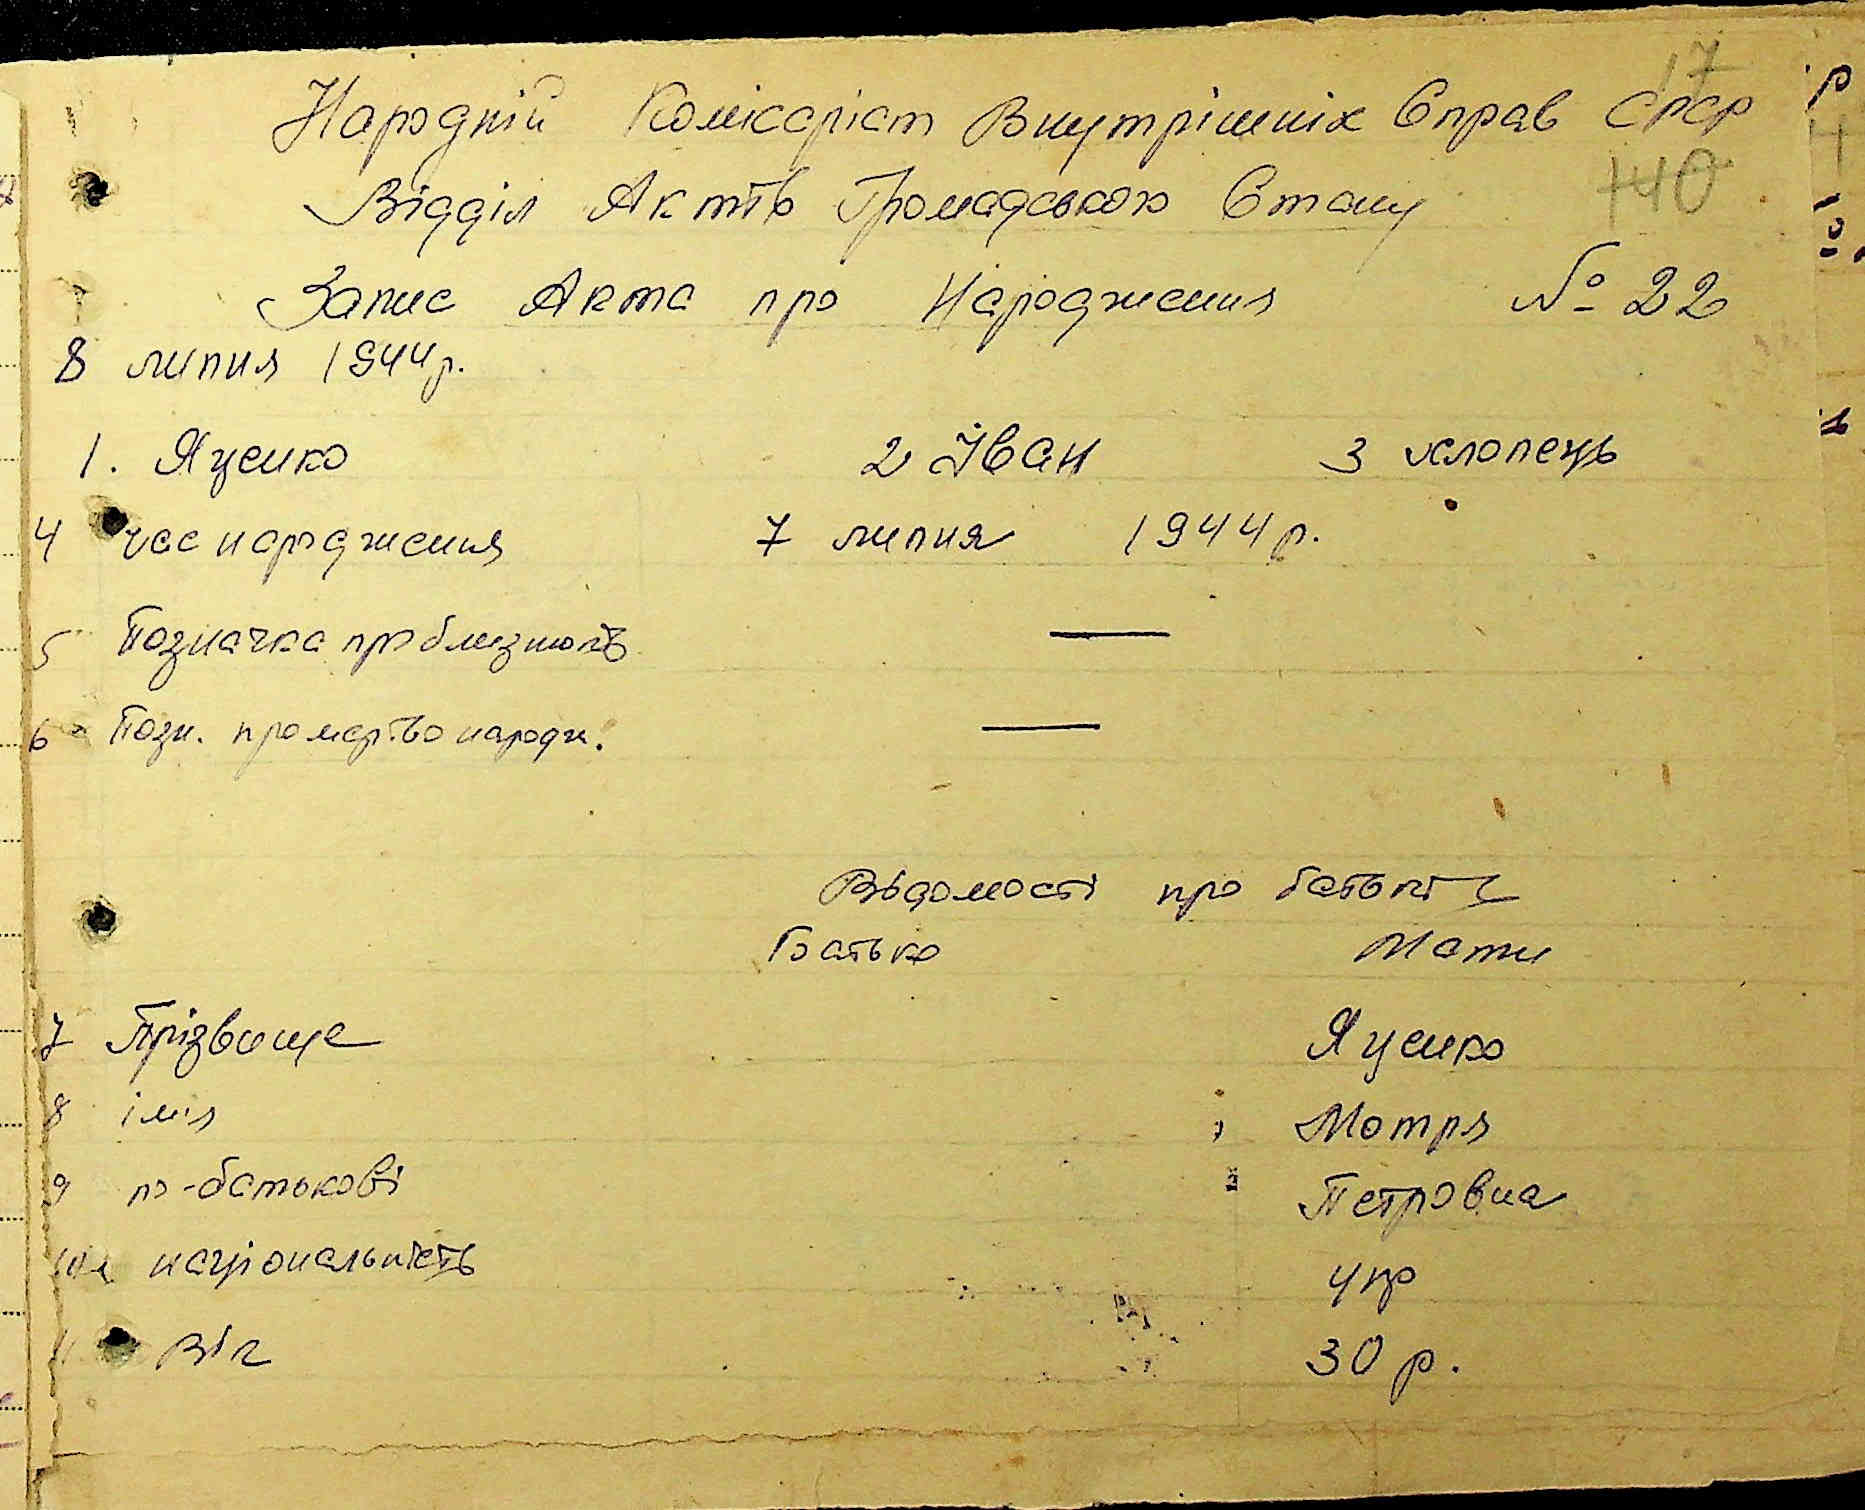 17
Народній Комісаріат Внутрішніх Справ СРСР
140
Відділ Актів Громадського Стану
Запис Акта про Народження № 22
8 липня 1944 р.
1. Яценко 2 Іван 3 хлопець
4 час народження 7 липня 1944 р.
5 Позначка про близнюків —
6 Позн. про мертво народж. —
Відомості про батьків
Батько Мати
7 Прізвище Яценко
8 імя Мотря
9 по-батькові Петровна
10 національність укр
11 вік 30 р.